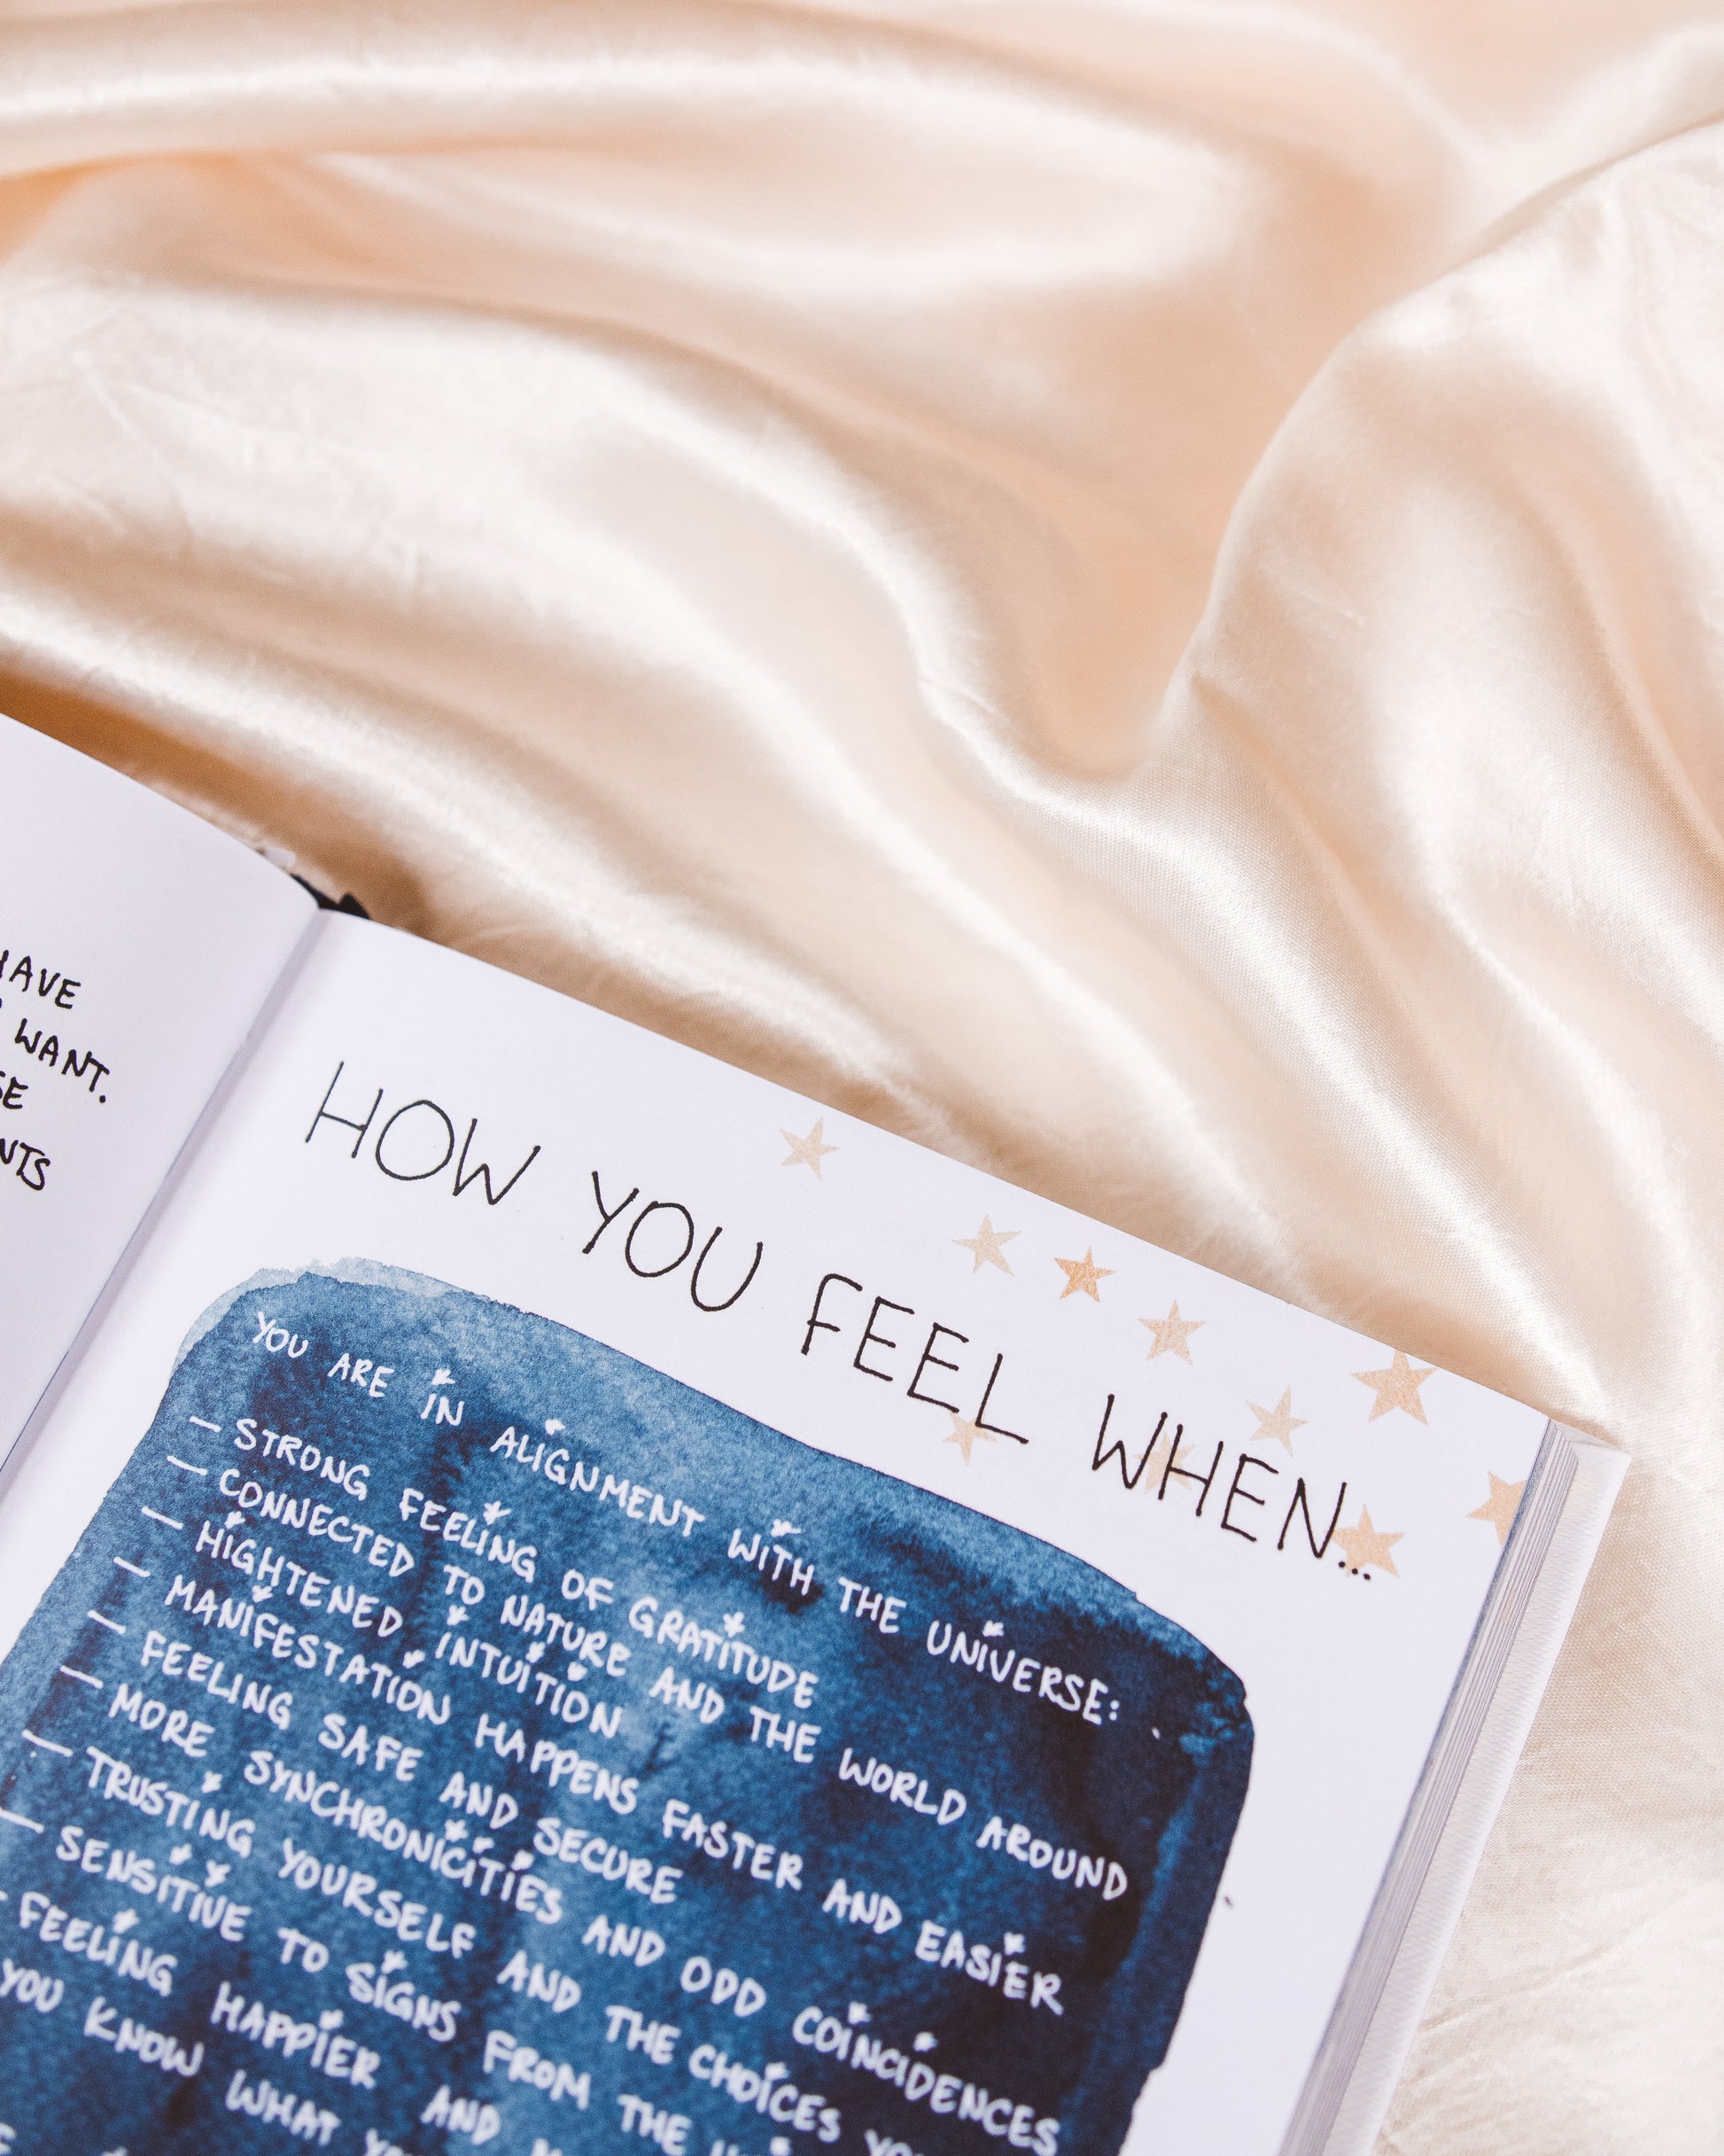 HAVE
WANT.
HOW YOU FEEL WHEN...
YOU ARE IN ALIGNMENT WITH THE UNIVERSE:
– STRONG FEELING OF GRATITUDE
– CONNECTED TO NATURE AND THE WORLD AROUND
– HIGHTENED INTUITION
– MANIFESTATION HAPPENS FASTER AND EASIER
– FEELING SAFE AND SECURE
– MORE SYNCHRONICITIES AND ODD COINCIDENCES
– TRUSTING YOURSELF AND THE CHOICES
– SENSITIVE TO SIGNS FROM THE
– FEELING HAPPIER AND
YOU KNOW WHAT